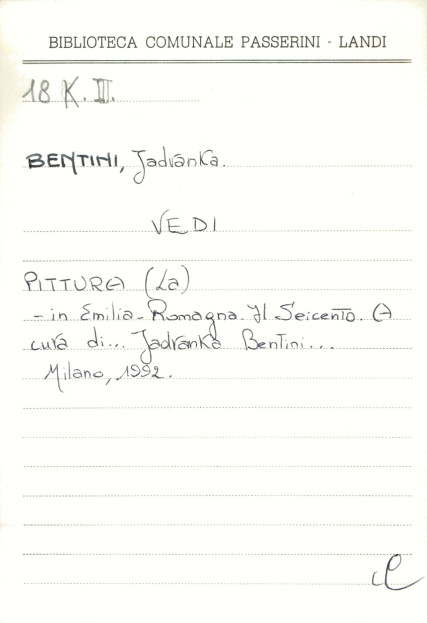 BIBLIOTECA COMUNALE PASSERINI - LANDI
18 K. III.
BENTINI, Jadranka.
VEDI
PITTURA (La)
- in Emilia-Romagna. Il Seicento. A
cura di... Jadranka Bentini...
Milano, 1992.